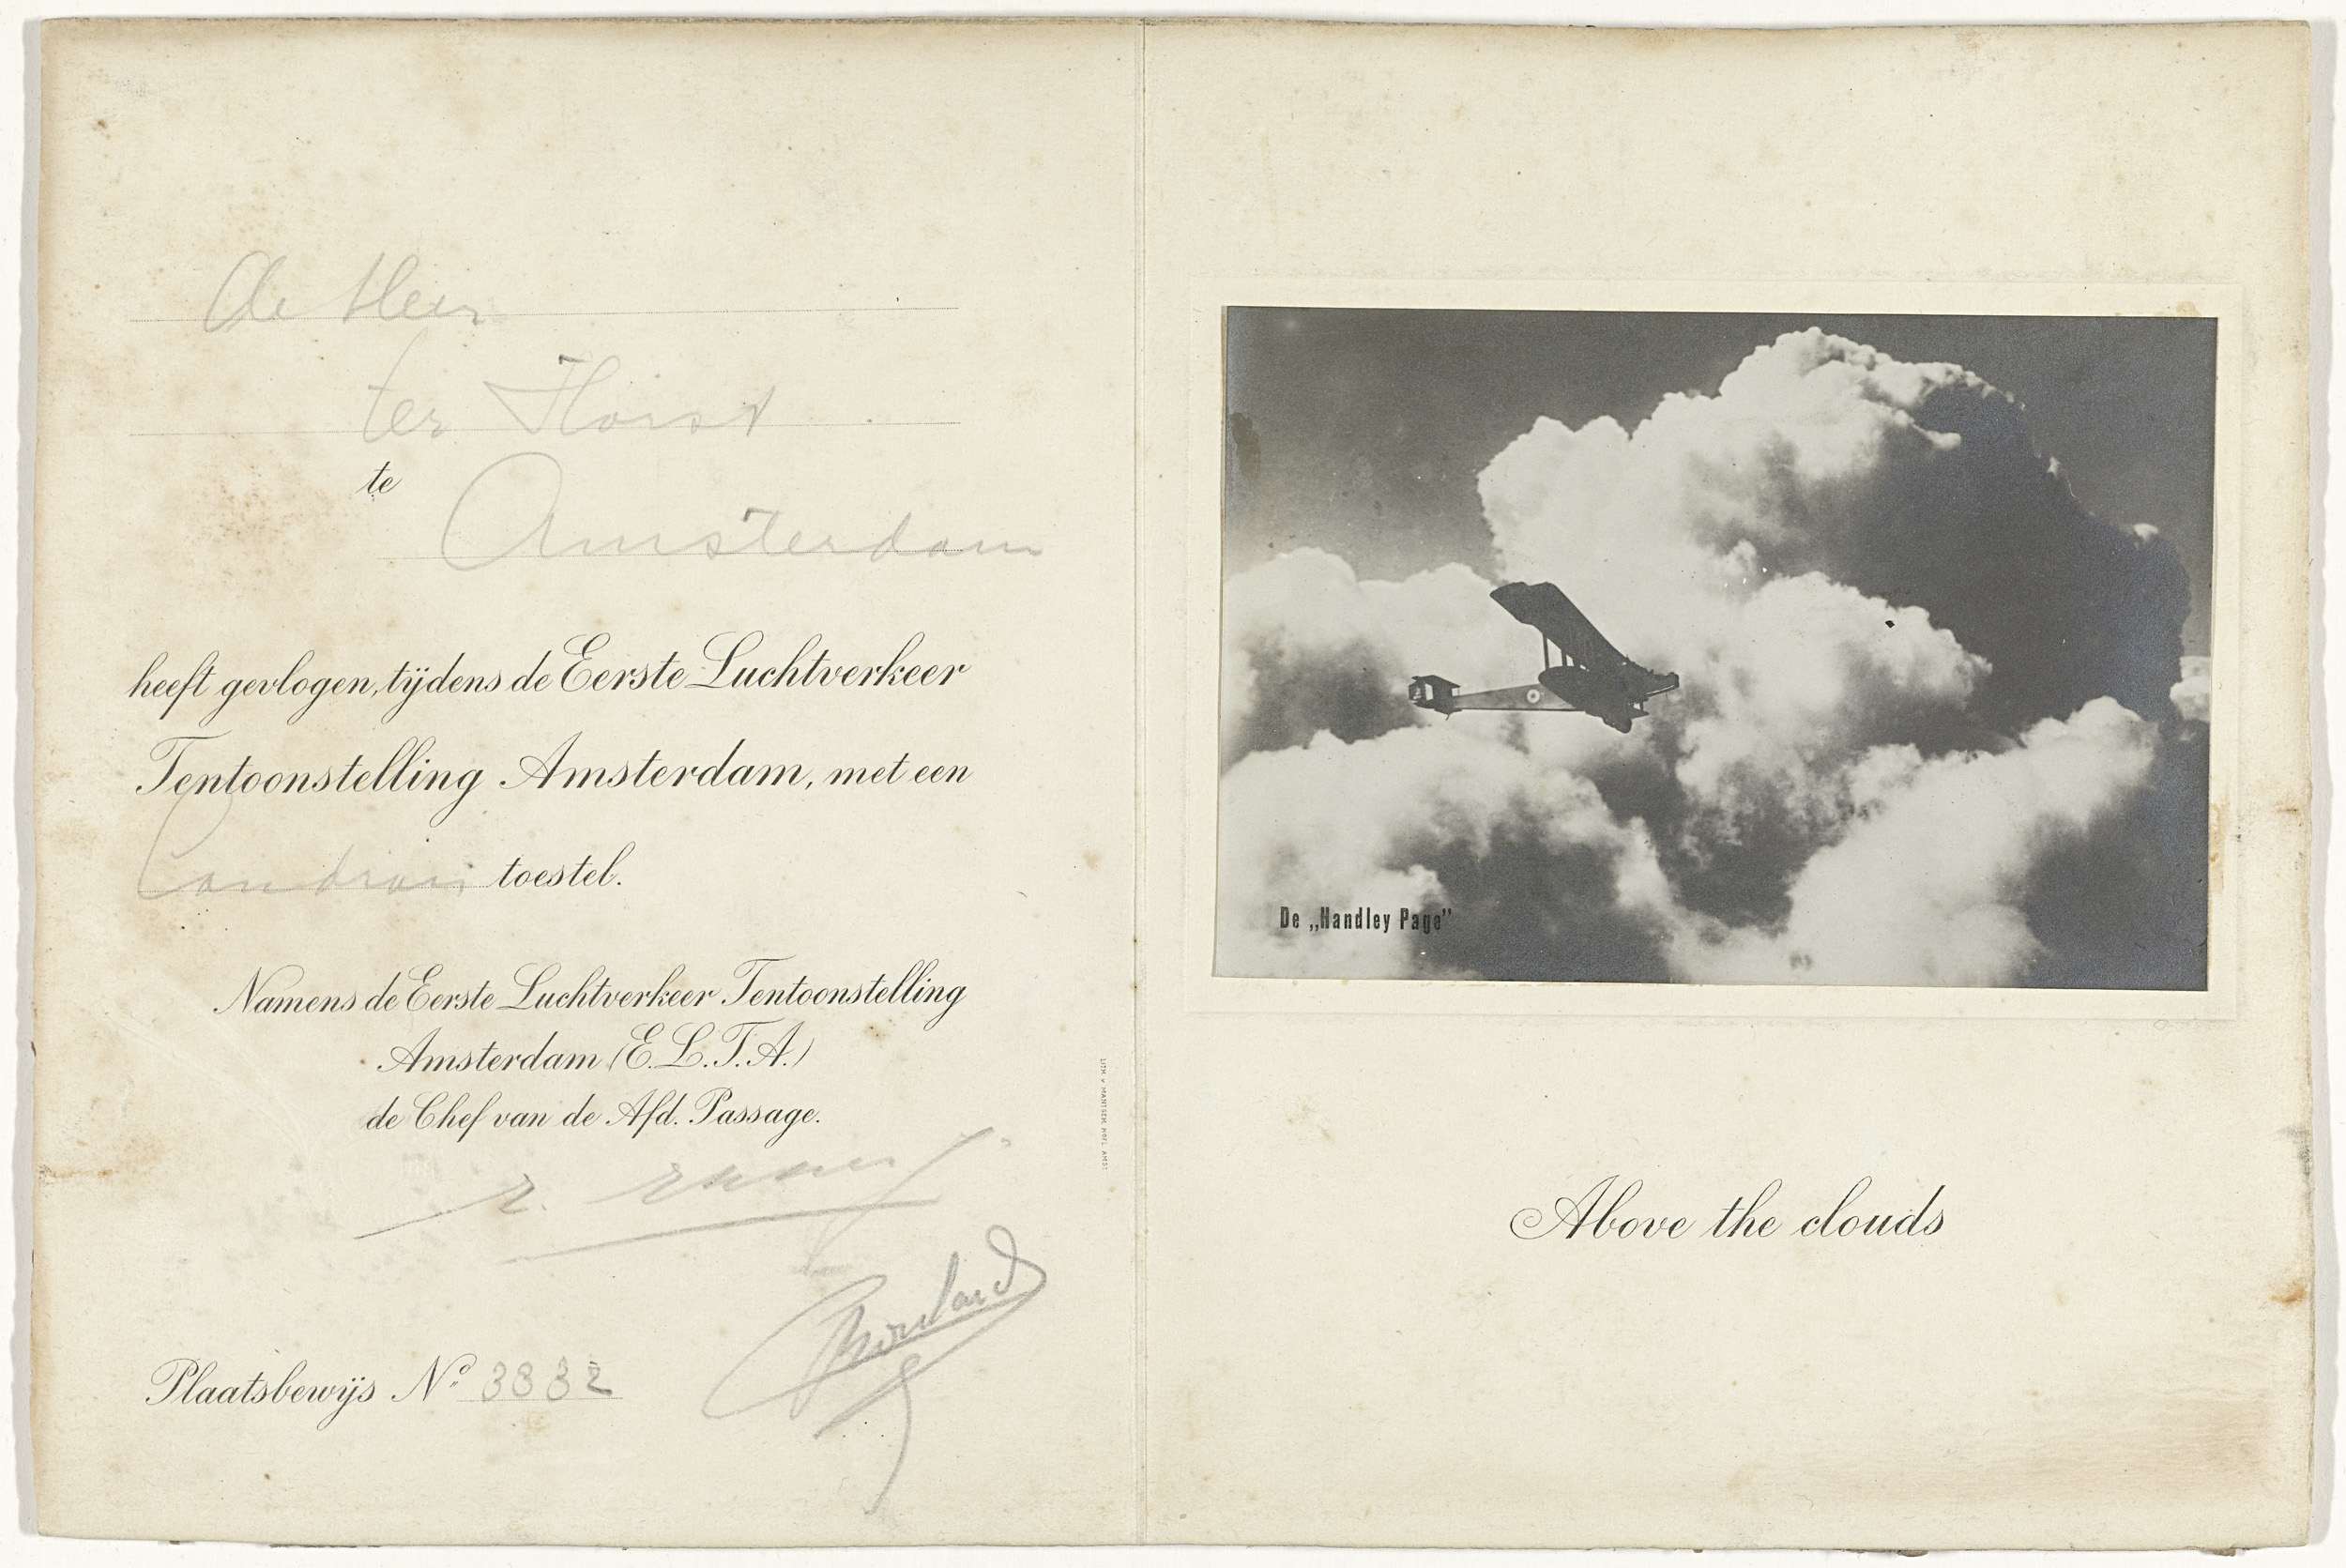 de Heer
ter Horst
te
Amsterdam
heeft gevlogen, tijdens de Eerste Luchtverkeer
Tentoonstelling Amsterdam, met een
Caudron toestel.
Namens de Eerste Luchtverkeer Tentoonstelling
Amsterdam (E.L.T.A.)
de Chef van de Afd. Passage.
Plaatsbewijs No. 3832
De „Handley Page"
Above the clouds